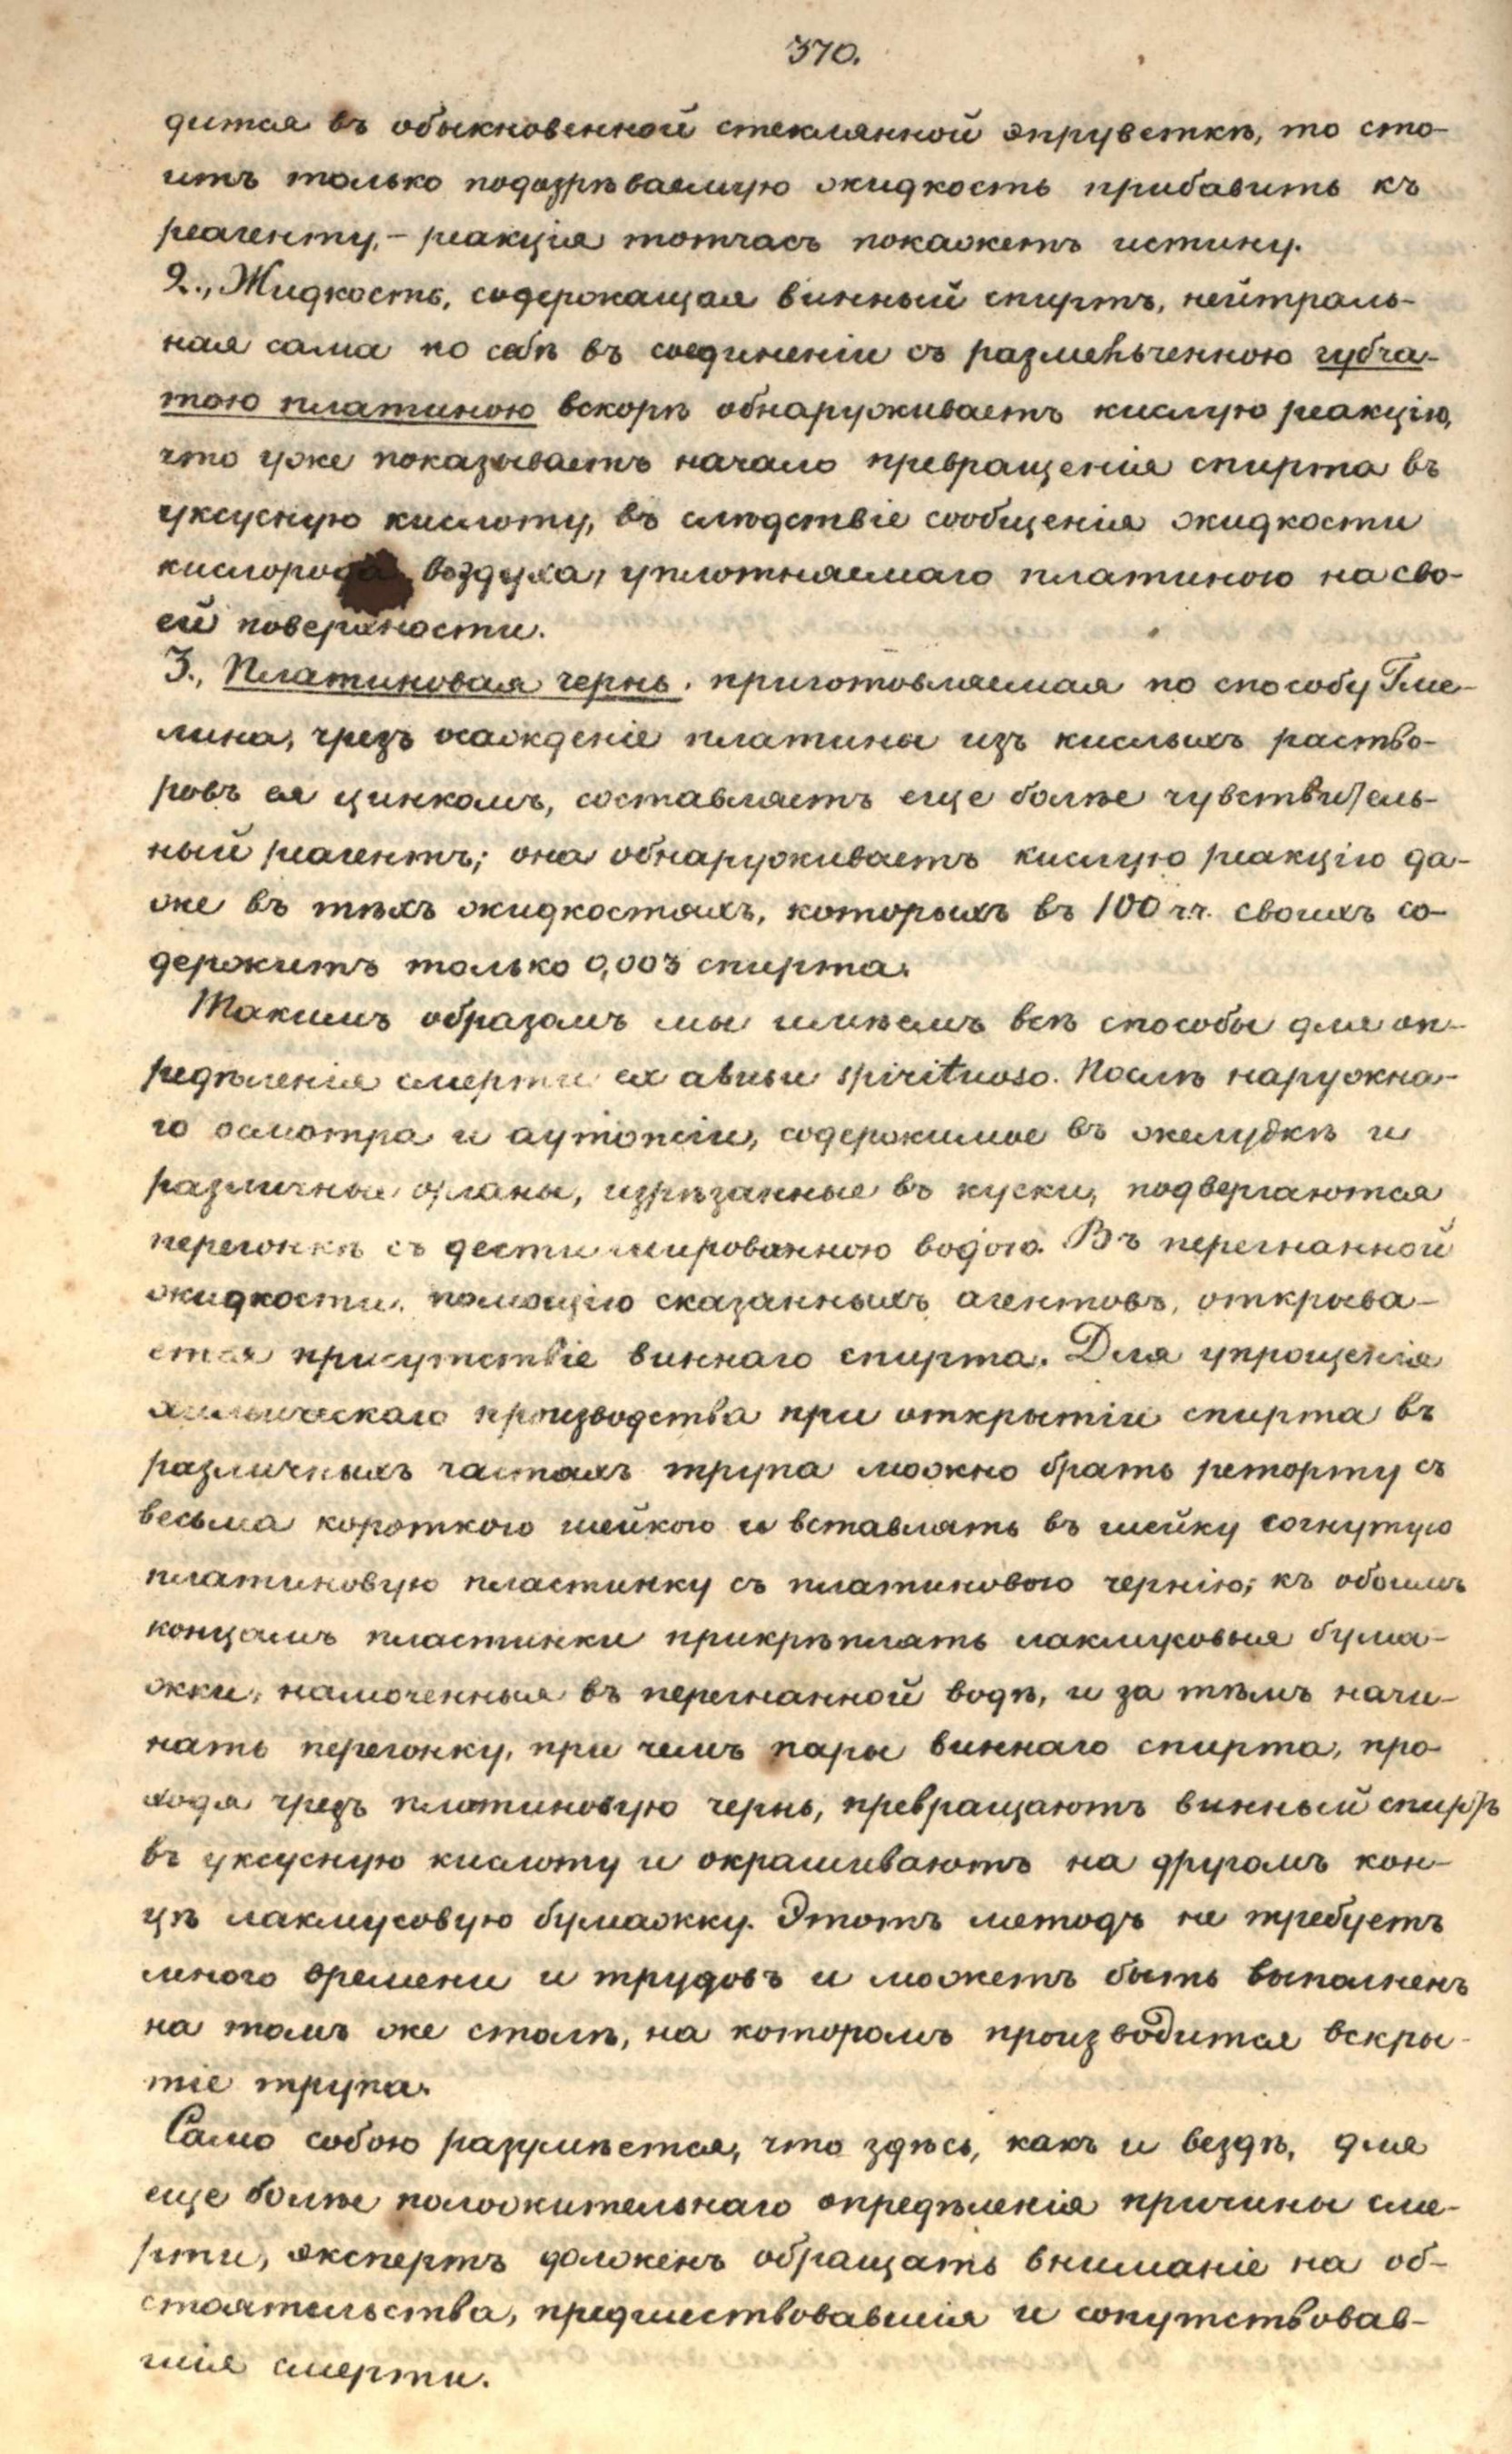 370.
дится въ обыкновенной стеклянной эпруветкѣ, то сто-
итъ только подозрѣваемую жидкость прибавить къ
реагенту, - реакція тотчасъ покажетъ истину.
2., Жидкость, содержащая винный спиртъ, нейтраль-
ная сама по себѣ въ соединеніи съ размельченною губча-
тою платиною вскорѣ обнаруживаетъ кислую реакцію,
что уже показываетъ начало превращенія спирта въ
уксусную кислоту, въ слѣдствіе сообщенія жидкости
кислорода воздуха, уплотняемаго платиною на сво-
ей поверхности.
3., Платиновая чернь, приготовляемая по способу Гме-
лина, чрезъ осажденіе платины изъ кислыхъ раство-
ровъ ея цинкомъ, составляетъ еще болѣе чувствитель-
ный реагентъ; она обнаруживаетъ кислую реакцію да-
же въ тѣхъ жидкостяхъ, которыхъ въ 100 чч. своихъ со-
держитъ только 0,003 спирта.
Такимъ образомъ мы имѣемъ всѣ способы для оп-
редѣленія смерти ex abusu spirituoso. Послѣ наружна-
го осмотра и аутопсіи, содержимое въ желудкѣ и
различные органы, изрѣзанные въ куски, подвергаются
перегонкѣ съ дестиллированною водою. Въ перегнанной
жидкости, помощію сказанныхъ агентовъ, открыва-
ется присутствіе виннаго спирта. Для упрощенія
химическаго производства при открытіи спирта въ
различныхъ частяхъ трупа можно брать реторту съ
весьма короткою шейкою и вставлять въ шейку согнутую
платиновую пластинку съ платиновою чернію; къ обоимъ
концамъ пластинки прикрѣплять лакмусовыя бума-
жки, намоченныя въ перегнанной водѣ, и за тѣмъ начи-
нать перегонку, при чемъ пары виннаго спирта, про-
ходя чрезъ платиновую чернь, превращаютъ винный спиртъ
въ уксусную кислоту и окрашиваютъ на другомъ кон-
цѣ лакмусовую бумажку. Этотъ методъ не требуетъ
много времени и трудовъ и можетъ быть выполненъ
на томъ же столѣ, на которомъ производится вскры-
тіе трупа.
Само собою разумѣется, что здѣсь, какъ и вездѣ, для
еще болѣе положительнаго опредѣленія причины сме-
рти, экспертъ долженъ обращать вниманіе на об-
стоятельства, предшествовавшія и сопутствовав-
шія смерти.